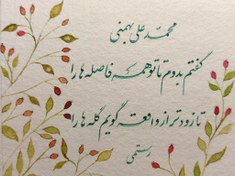 محمد علی بهمنی
گفتم بدوم تا تو همه فاصله ها را
تا زودتر از واقعه گویم گله ها را
رستمی